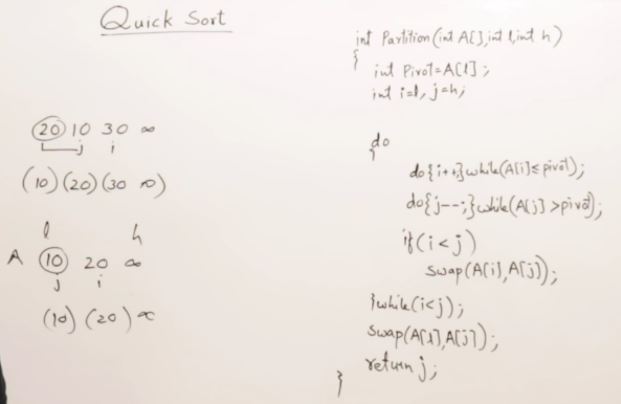 Quick Sort
20 10 30 ∞
j i
(10) (20) (30 ∞)
l h
A 10 20 ∞
j i
(10) (20) ∞
int Partition(int A[],int l,int h)
{
int Pivot=A[l];
int i=l, j=h;
do
{
do{i++}while(A[i]≤pivot);
do{j--;}while(A[j]>pivot);
if(i<j)
swap(A[i],A[j]);
}while(i<j);
swap(A[l],A[j]);
return j;
}